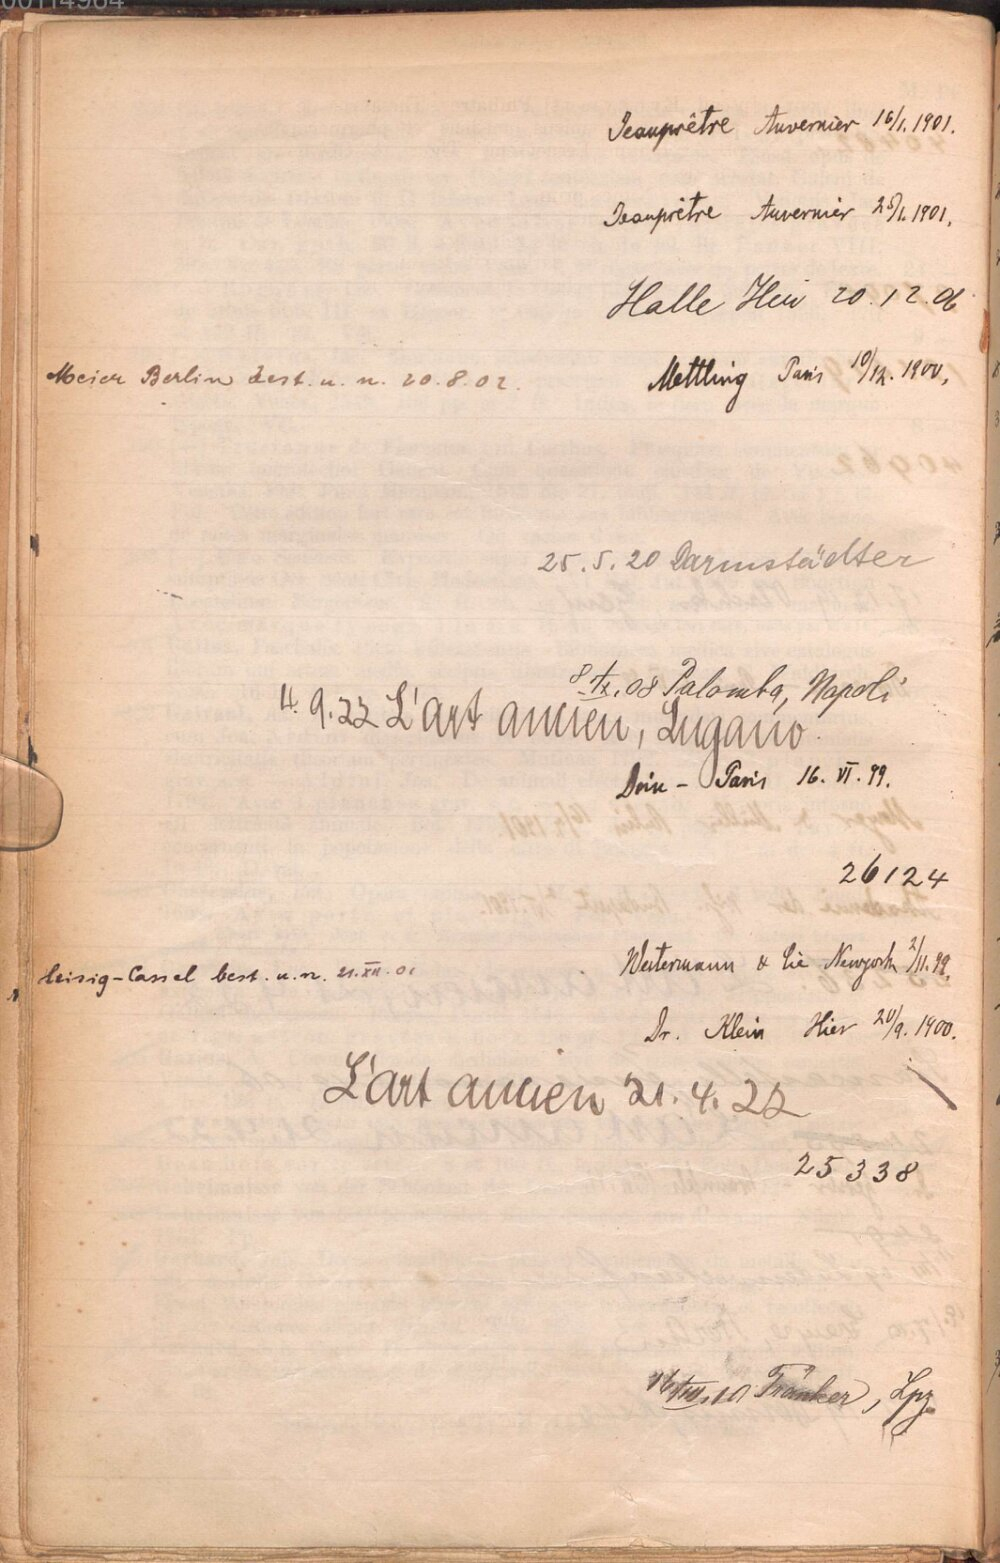 00114964
Jeauprêtre Auvernier 16/1.1901.
Jeauprêtre Auvernier 25/1.1901.
Halle Hein 20.12.06
Meier Berlin best. u. n. 20.8.02.
Mettling Paris 10/12. 1900,
25.5.20 Darmstädter
8/IX.08 Palomba, Napoli
4.9.22 L'art ancien, Lugano
Doin - Paris 16. VI. 99.
26124
Westermann & Cie Newyork 2/11.99.
Leisig-Cassel best. u. n. 21.XII.01
Dr. Klein Hier 20/9. 1900.
L'art ancien 21.4.22
25338
10 Fränker, Lpz.